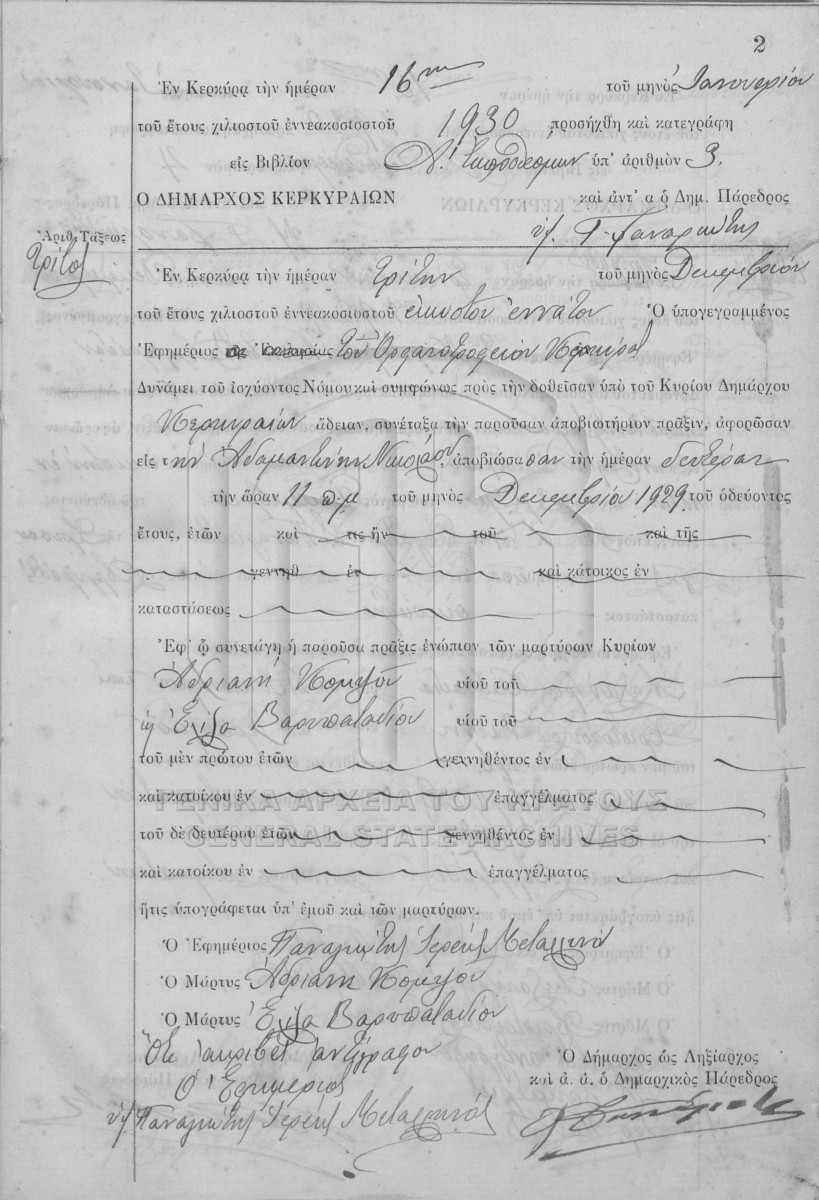 2
Ἐν Κερκύρᾳ τὴν ἡμέραν 16ην τοῦ μηνὸς Ἰανουαρίου
τοῦ ἔτους χιλιοστοῦ ἐννεακοσιοστοῦ 1930 προσήχθη καὶ κατεγράφη
εἰς Βιβλίον Α. ἐκπροθέσμων ὑπ' ἀριθμὸν 3.
Ο ΔΗΜΑΡΧΟΣ ΚΕΡΚΥΡΑΙΩΝ καὶ ἀντ' α ὁ Δημ. Πάρεδρος
Ἀριθ. Τάξεως
Τρίτος
Ἐν Κερκύρᾳ τὴν ἡμέραν τρίτην τοῦ μηνὸς Δεκεμβρίου
τοῦ ἔτους χιλιοστοῦ ἐννεακοσιοστοῦ εἰκοστοῦ ἐννάτου Ὁ ὑπογεγραμμένος
Ἐφημέριος τοῦ Ὀρφανοτροφείου Κερκύρας
Δυνάμει τοῦ ἰσχύοντος Νόμου καὶ συμφώνως πρὸς τὴν δοθεῖσαν ὑπὸ τοῦ Κυρίου Δημάρχου
Κερκυραίων ἄδειαν, συνέταξα τὴν παροῦσαν ἀποβιωτήριον πρᾶξιν, ἀφορῶσαν
εἰς τὴν Ἀδαμαντίνην Νικολάου, ἀποβιώσασαν τὴν ἡμέραν δευτέραν
τὴν ὥραν 11 π.μ τοῦ μηνὸς Δεκεμβρίου 1929 τοῦ ὁδεύοντος
ἔτους, ἐτῶν καὶ τις ἦν τοῦ καὶ τῆς
γεννηθ ἐν καὶ κάτοικος ἐν
καταστάσεως
Ἐφ' ᾧ συνετάγη ἡ παροῦσα πρᾶξις ἐνώπιον τῶν μαρτύρων Κυρίων
Ἀδριανὴ υἱοῦ τοῦ
Ἐλίζα Βαρυπατάδου υἱοῦ τοῦ
τοῦ μὲν πρώτου ἐτῶν γεννηθέντος ἐν
καὶ κατοίκου ἐν ἐπαγγέλματος
ΓΕΝΙΚΑ ΑΡΧΕΙΑ ΤΟΥ ΚΡΑΤΟΥΣ
τοῦ δὲ δευτέρου ἐτῶν γεννηθέντος ἐν
GENERAL STATE ARCHIVES
καὶ κατοίκου ἐν ἐπαγγέλματος
ἥτις ὑπογράφεται ὑπ' ἐμοῦ καὶ τῶν μαρτύρων.
Ὁ Ἐφημέριος Παναγιώτης Ἱερεὺς Μεταλληνός
Ὁ Μάρτυς Ἀδριανὴ
Ὁ Μάρτυς Ἐλίζα Βαρυπατάδου
Ὅτι ἀκριβὲς ἀντίγραφον
Ὁ Ἐφημέριος
Παναγιώτης Ἱερεὺς Μεταλληνός
Ὁ Δήμαρχος ὡς Ληξίαρχος
καὶ ἀ. ἀ. ὁ Δημαρχικὸς Πάρεδρος